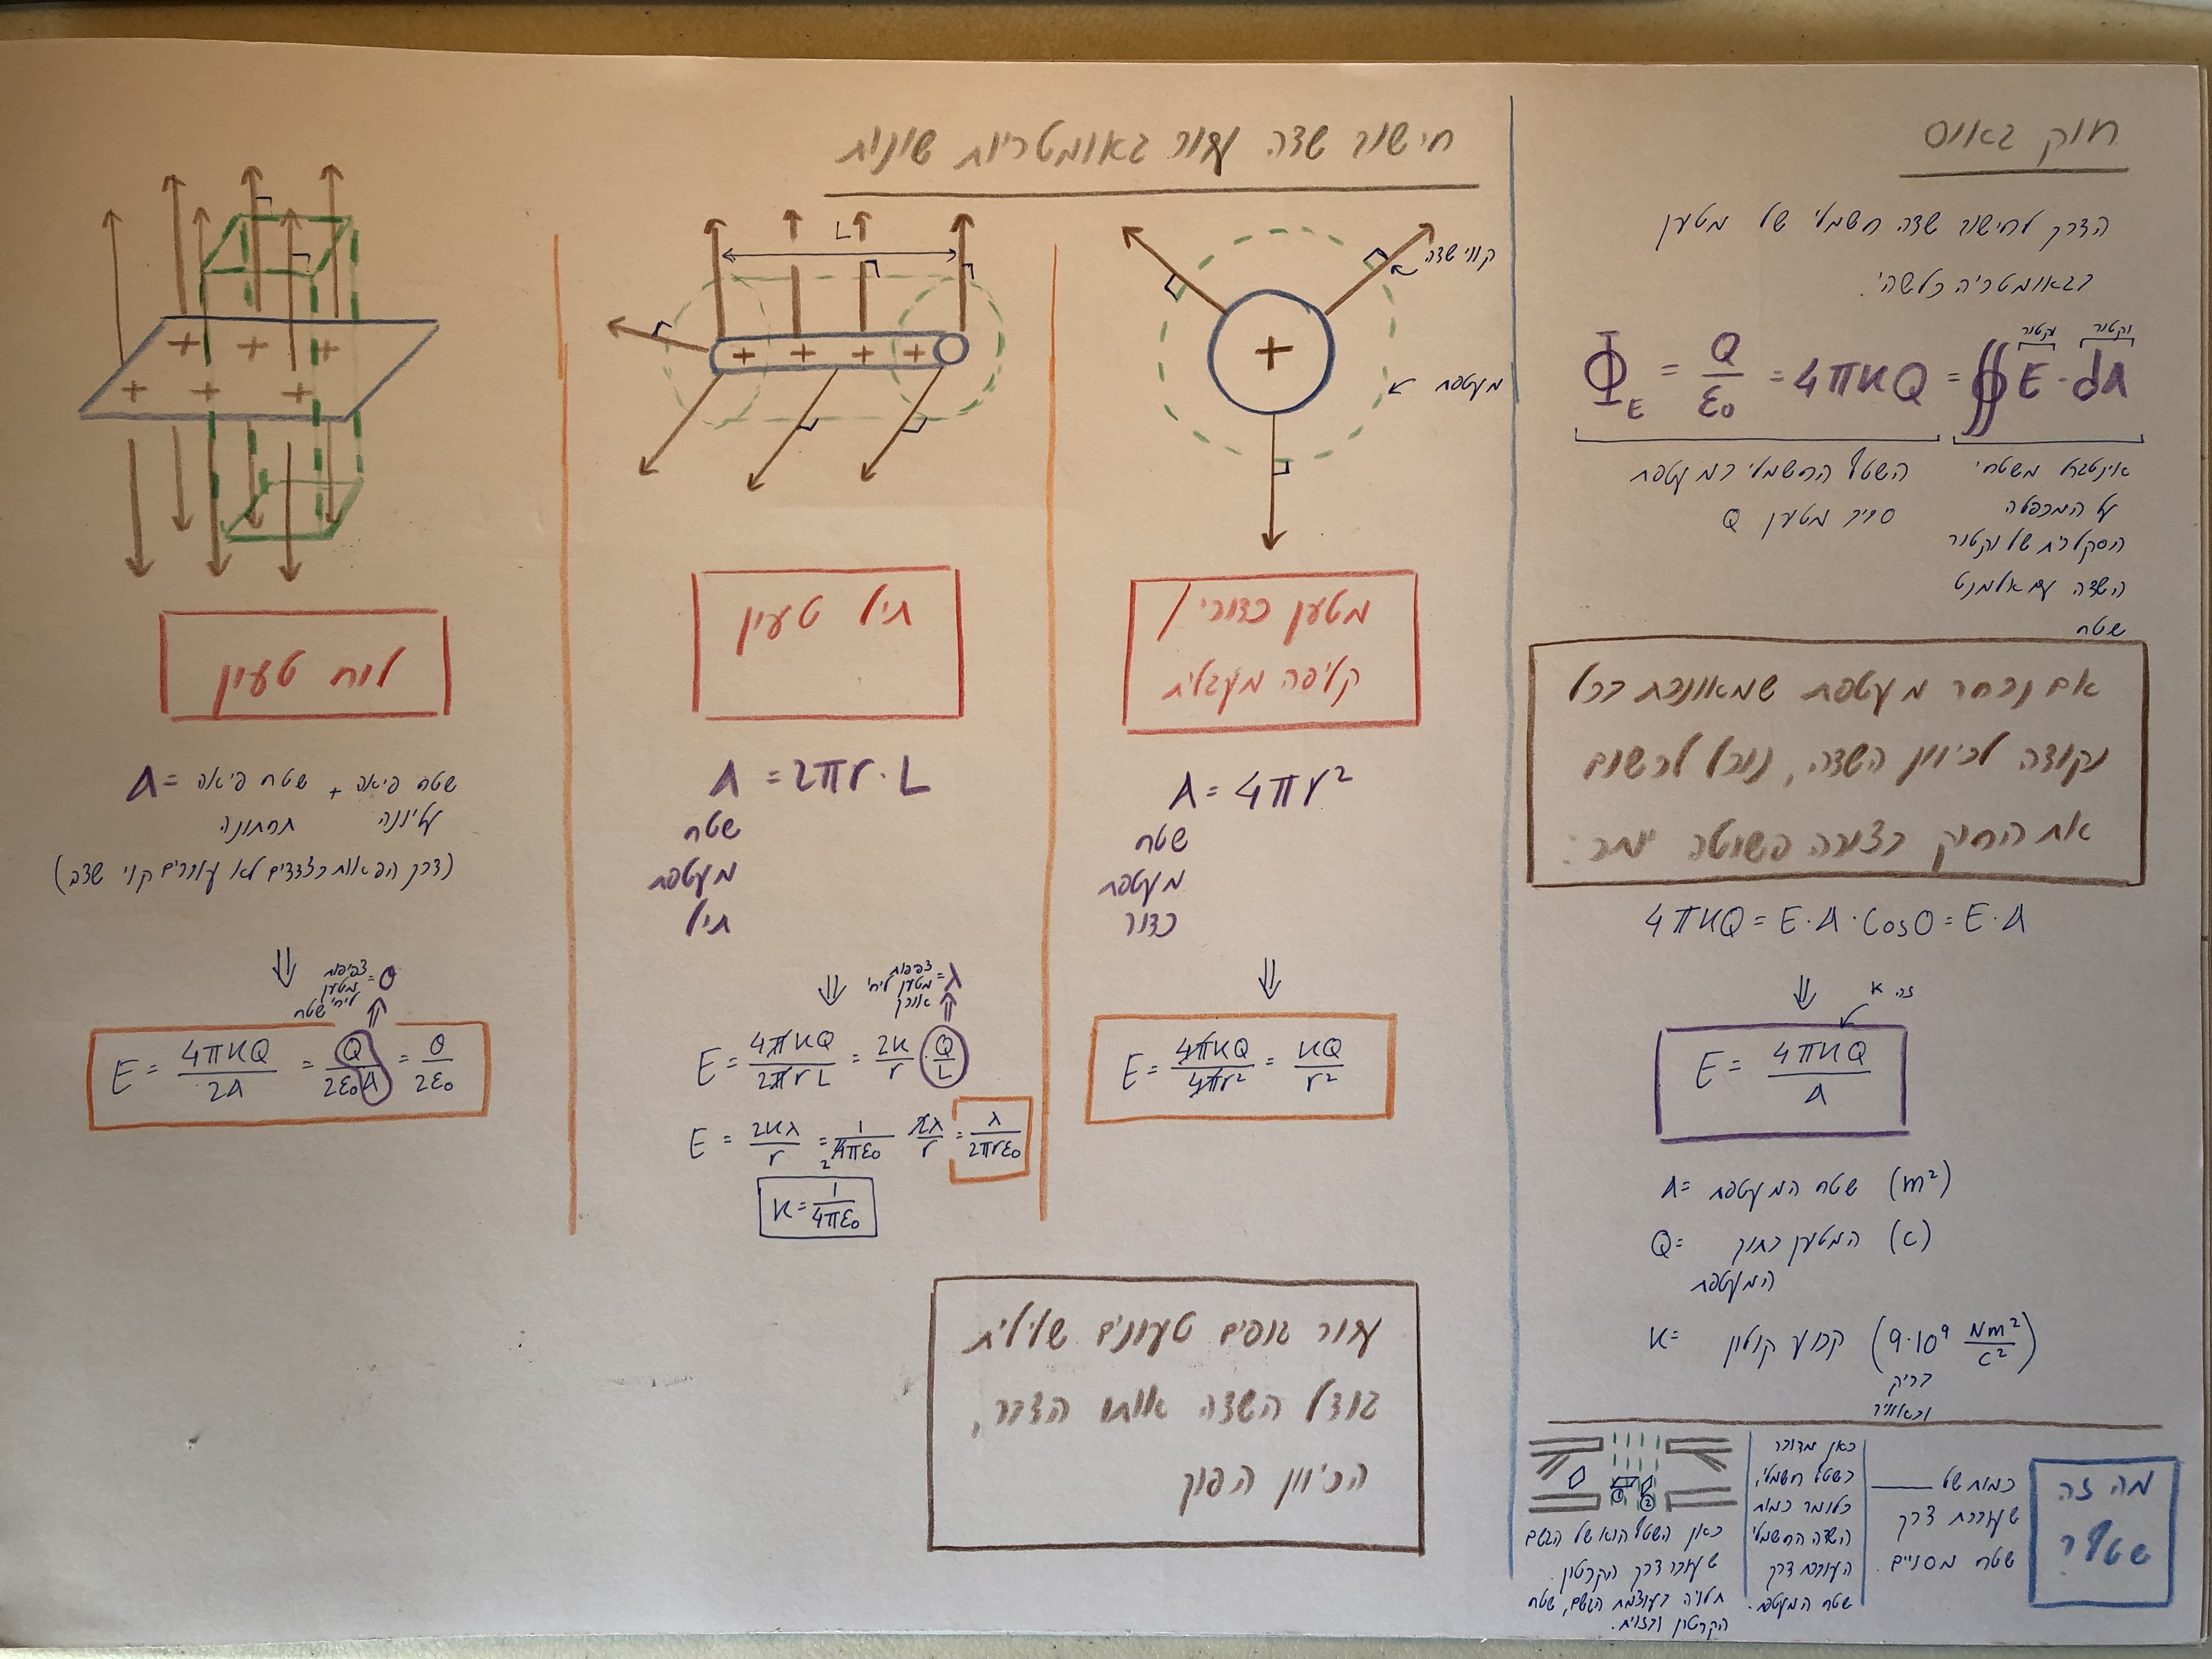 חוק גאוס
הדרך לחישוב שדה חשמלי של מטען
בגאומטריה כלשהי.
וקטור וקטור
Φ_E = Q/ε₀ = 4πKQ = ∯ E · dA
השטף החשמלי במעטפת
סביב מטען Q
אינטגרל משטחי
על המכפלה
הסקלרית של וקטור
השדה עם אלמנט
שטח
אם נבחר מעטפת שמאונכת בכל
נקודה לכיוון השדה, נוכל לרשום
את החוק בצורה פשוטה יותר:
4πKQ = E·A·Cos0 = E·A
⇓
זה K
E = 4πKQ/A
A= שטח המעטפת (m²)
Q= המטען בתוך (c)
המעטפת
K= קבוע קולון (9·10⁹ Nm²/c²)
בריק
ובאוויר
מה זה
שטף?
כמות של ____
שעוברת דרך
שטח מסויים.
כאן מדובר
בשטף חשמלי,
כלומר כמות
השדה החשמלי
העוברת דרך
שטח המעטפת.
① ②
כאן השטף הוא של הגשם
שעובר דרך הקרטון.
תלויה בעוצמת הגשם, שטח
הקרטון ובזווית.
חישוב שדה עבור גאומטריות שונות
קווי שדה
+
מעטפת
מטען כדורי/
קליפה מעגלית
A = 4πr²
שטח
מעטפת
כדור
⇓
E = 4πKQ/4πr² = KQ/r²
L
+ + + +
תיל טעון
A = 2πr·L
שטח
מעטפת
תיל
⇓
צפיפות
מטען ליח'
אורך
=λ
E = 4πKQ/2πrL = 2K/r · Q/L
E = 2Kλ/r = 1/4πε₀ 2λ/r = λ/2πrε₀
2
K = 1/4πε₀
+ + +
+ + +
לוח טעון
A= שטח פיאה + שטח פיאה
עליונה תחתונה
(דרך הפאות בצדדים לא עוברים קווי שדה)
⇓
צפיפות
מטען
ליח' שטח
=σ
E = 4πKQ/2A = Q/2ε₀A = σ/2ε₀
עבור גופים טעונים שלילית
גודל השדה אותו הדבר,
הכיוון הפוך